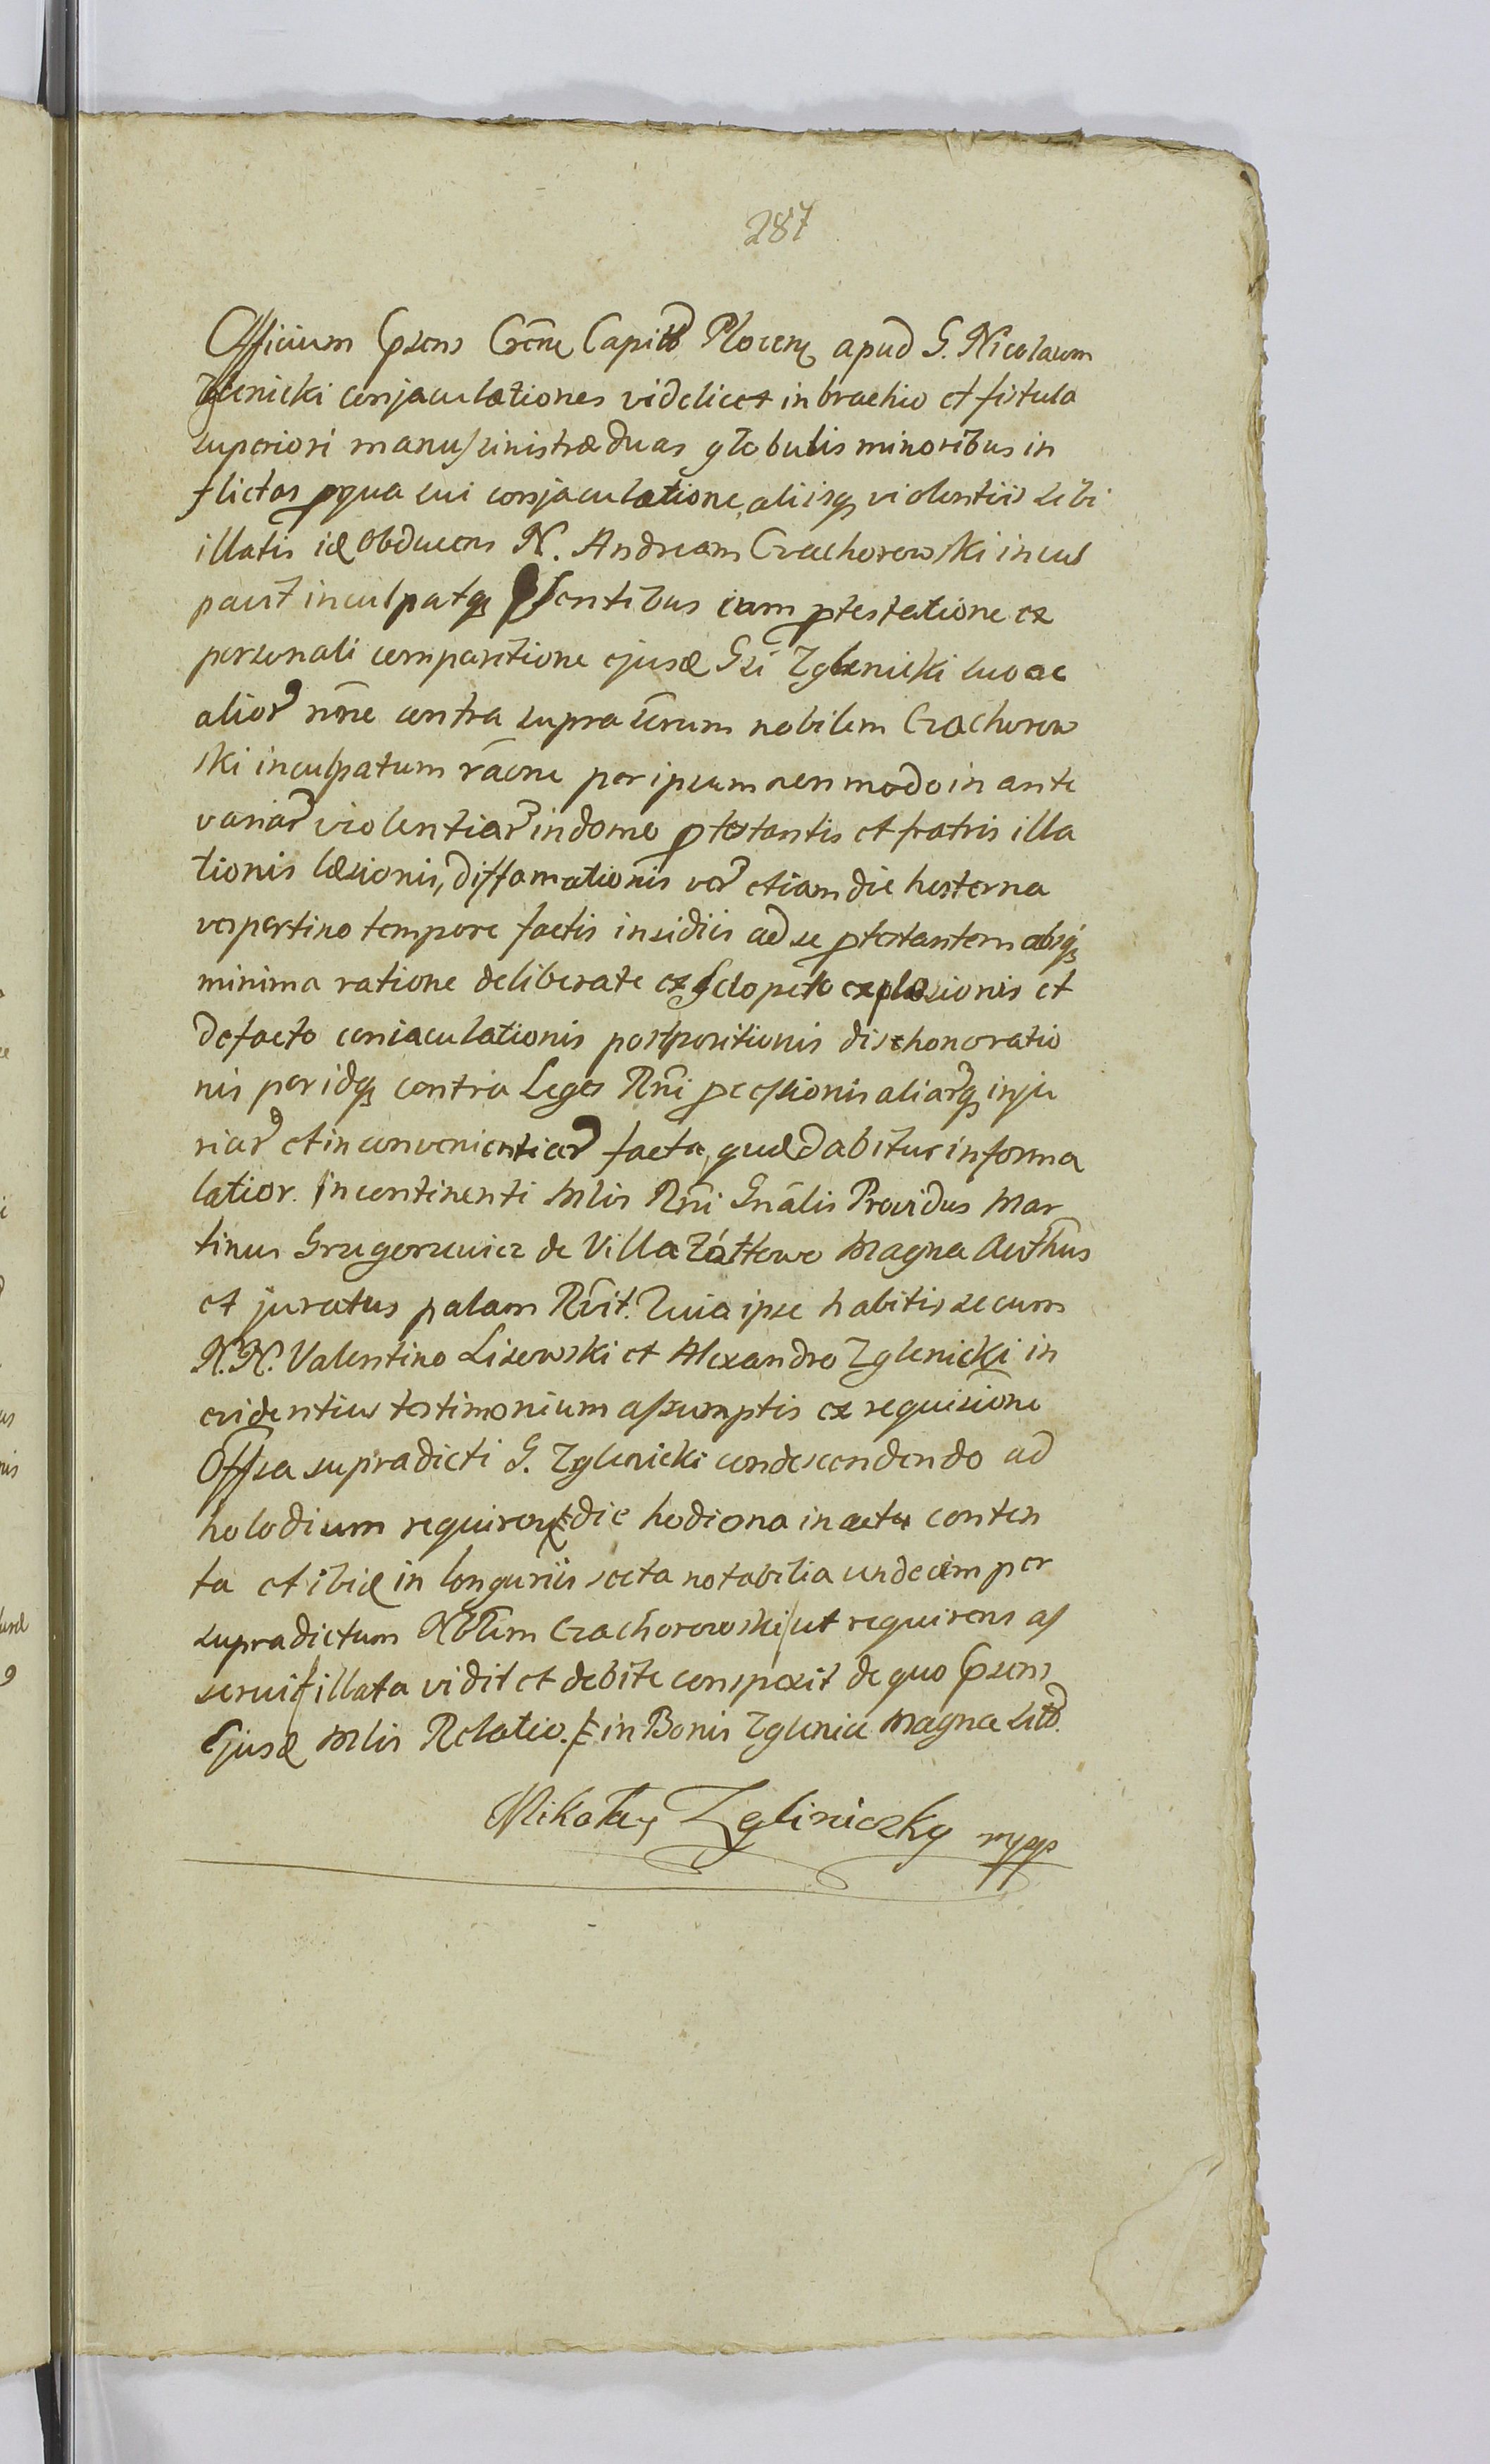 287
Officium Psens Crense Capitle Plocense apud G. Nicolaum
Zglenicki conjaculationes videlicet in brachio et fistula
superiori manus sinistræ duas globulis minoribus in
flictas pro qua sui conjaculatione, aliisq violentiis sibi
illatis id Obducens N. Andream Czachorowski incul
pavit inculpatq Psentibus cum ptestatione ex
personali comparitione ejusd Gsi Zglenicki suo ac
alior noie contra supra scrum nobilem Czachorow
ski inculpatum raone per ipsum non modo in ante
variar violentiar in domo ptestantis et fratris illa
tionis læsionis, diffamationis ver etiam die hesterna
vespertino tempore factis insidiis ad se ptestantem absq
minima ratione deliberate ex sclopeto explosionis et
de facto coniaculationis postpositionis dishonoratio
nis per idq contra Leges Rni pcessionis aliarq inju
riar et inconvenientiar facta, quæ dabitur in forma
latior. Incontinenti Mlis Rni Gnalis Providus Mar
tinus Grzegorzewicz de Villa Zółtowo Magna Authus
et juratus palam Rcvit. Quia ipse habitis secum
N.N. Valentino Lisowski et Alexandro Zglenicki in
evidentius testimonium assumptis ex requisitione
Offsa supradicti G. Zglenicki condescendendo ad
holodium requirentis die hodierna in actu conten
ta et ibid in longuriis secta notabilia undecim per
supradictum Nblem Czachorowski /ut requirens as
seruit/ illata vidit et debite conspexit de quo Psens
Ejusd Mlis Relatio. in Bonis Zglenice Magna Sitt.
Mikołay Zgliniczky mpp